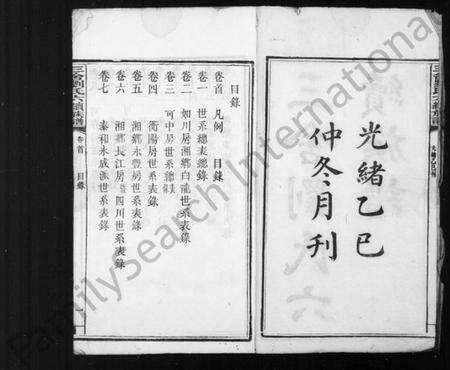 光緒乙巳
仲冬月刊
目錄
卷首 凡例 目錄
卷一 世系總表總錄
卷二 如川房湘鄉白龍世系表錄
卷三 可中房世系總表
卷四 衡陽房世系表錄
卷五 湘鄉永豐房世系表錄
卷六 湘鄉長江房四川世系表錄
卷七 泰和永成派世系表錄
卷首
目錄
FamilySearch International